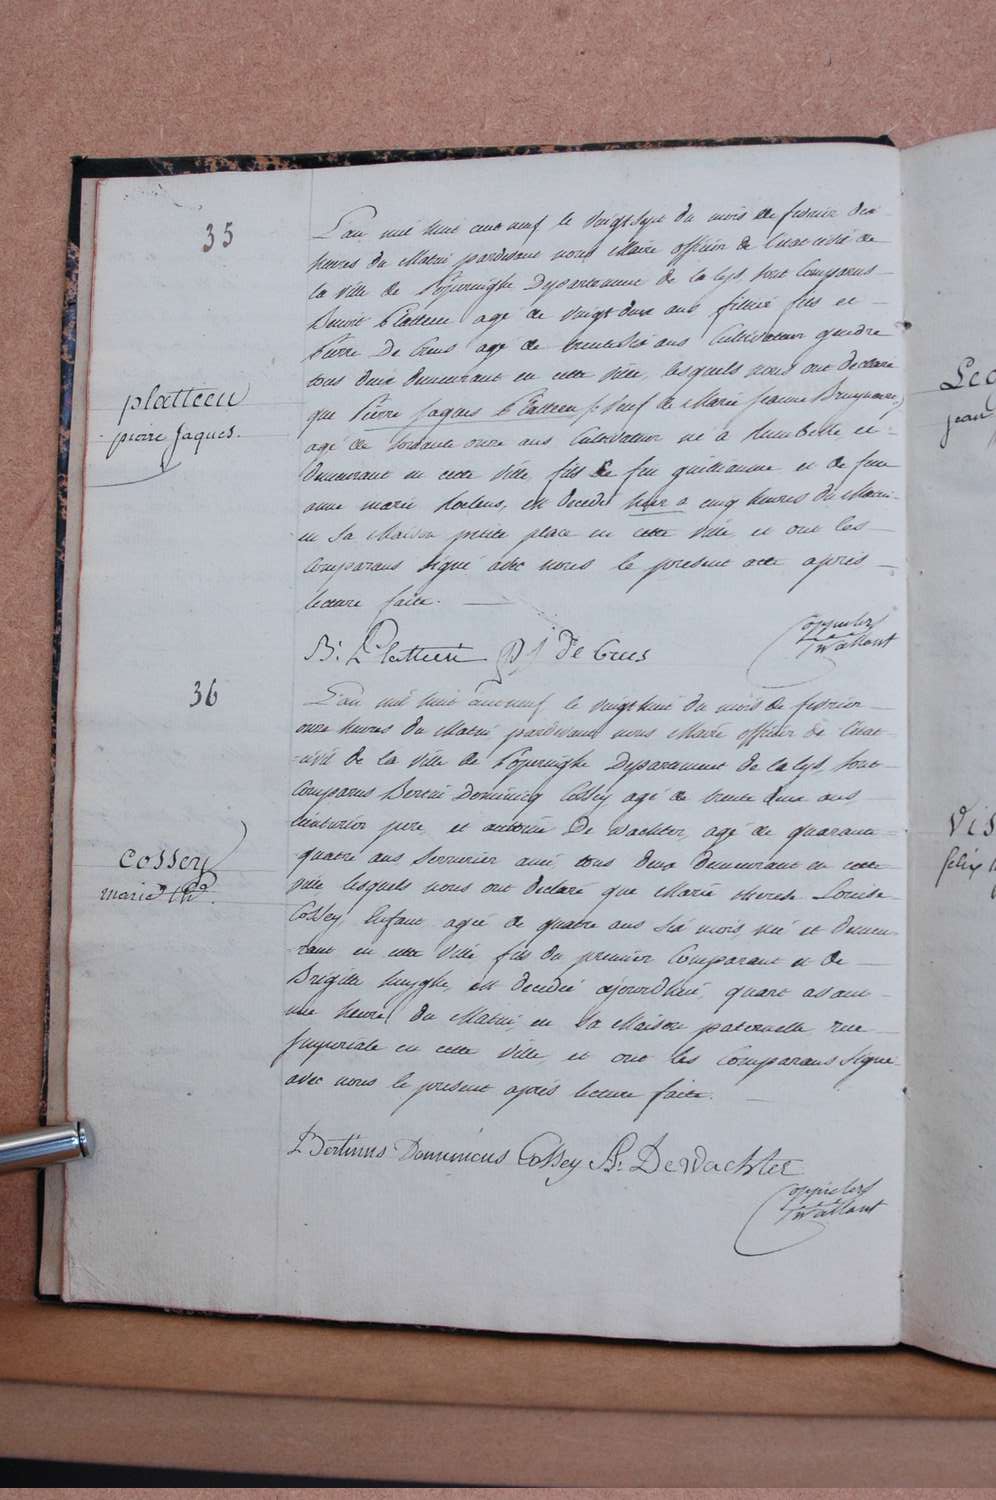 35
L'an mil huit cent neuf le vingt sept du mois de fevrier dix
heures du Matin pardevant nous Maire officier de l'etat civil de
la ville de Poperinghe Departement de la Lys, sont Comparus
Benoit Platteeu agé de vingt deux ans filtier fils et
Pierre De Crus agé de trente six ans Cultivateur gendre
tous deux demeurant en cette ville, lesquels nous ont declaré
que Pierre Jaques Platteeu veuf de Marie Jeanne Bruynaere,
agé de soixante onze ans Cultivateur né a et
demeurant en cette ville, fils de feu guiliaume et de feue
anne marie est decedé hier a cinq heures du Matin
en sa Maison petite place en cette ville, et ont les
Comparans signé avec nous le present acte après
lecture faite.
platteeu
pierre Jaques.
B. Platteeu P J De Crus
36
L'an mil huit cent neuf, le vingt huit du mois de fevrier
onze heures du Matin pardevant nous Maire officier de l'etat
civil de la ville de Poperinghe Departement de la Lys, sont
Comparus Bertin Dominicq Cossey agé de trente deux ans
teinturier pere, et De wachter, agé de quarante
quatre ans Serrurier ami tous deux demeurant en cette
ville lesquels nous ont declaré que Marie therese Louise
Cossey, Enfant, agée de quatre ans six mois, née et demeu-
-rant en cette ville fils du premier Comparant et de
Brigitte huyghe, est decedée ajourdhui, quart avant
une heure du Matin, en sa Maison paternelle rue
Imperiale en cette ville, et ont les Comparans signé
avec nous le present après lecture faite.
cossey
marie the.
Bertinus Dominicus Cossey De Wachter